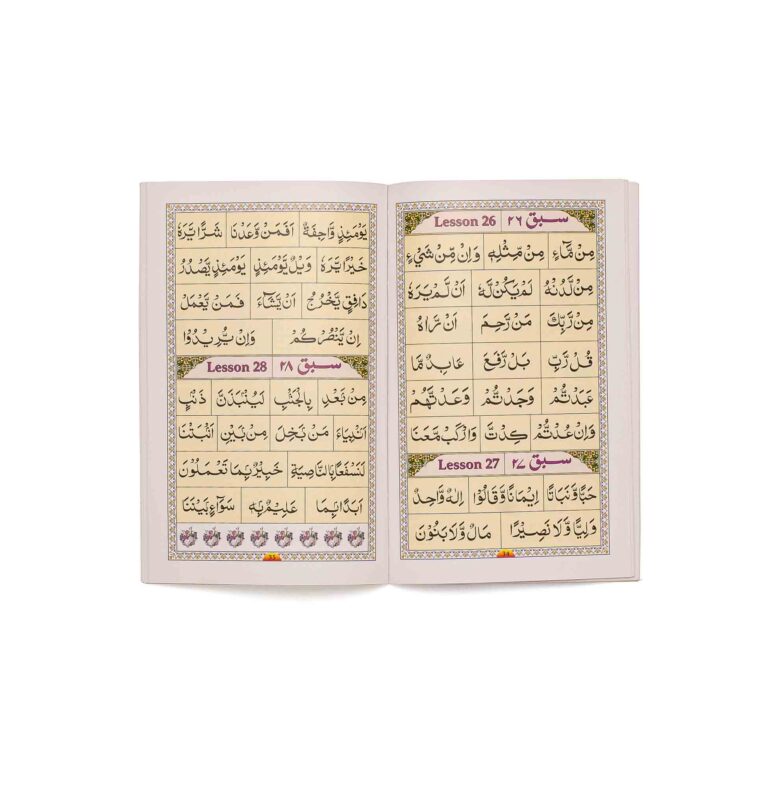 سبق ٢٦ Lesson 26
مِنْ مَّآءٍ مِنْ مِّثْلِهٖ وَاِنْ مِّنْ شَيْءٍ
مِنْ لَّدُنْهُ لَمْ يَكُنْ لَّهٗ اَنْ لَّمْ يَرَهٗ
مِنْ رَّبِّكَ مَنْ رَّحِمَ اَنْ رَّاٰهُ
قُلْ رَّبِّ بَلْ رَّفَعَ عَابِدٌ مَّا
عَبَدْتُّمْ وَجَدْتُّمْ وَعَدْتَّهُمْ
وَاِنْ عُدْتُّمْ كِدْتَّ وَارْكَبْ مَّعَنَا
سبق ٢٧ Lesson 27
حَبًّا وَّنَبَاتًا اِيْمَانًا وَّقَالُوْا اِلٰهٌ وَّاحِدٌ
وَلِيًّا وَّلَا نَصِيْرًا مَالٌ وَّلَا بَنُوْنَ
١٤
يَوْمَئِذٍ وَّاجِفَةٌ اَفَمَنْ وَّعَدْنَا شَرًّا يَّرَهٗ
خَيْرًا يَّرَهٗ وَيْلٌ يَّوْمَئِذٍ يَوْمَئِذٍ يَّصْدُرُ
دَافِقٍ يَّخْرُجُ اَنْ يَّشَآءَ فَمَنْ يَّعْمَلْ
اِنْ يَّنْصُرْكُمْ وَاِنْ يُّرِيْدُوْا
سبق ٢٨ Lesson 28
مِنْ بَعْدِ بِالْجَنْبِ لَيُنْبَذَنَّ ذَنْبٍ
اَنْبِيَآءَ مَنْ بَخِلَ مِنْ بَيْنِ اَنْبَتْنَا
لَنَسْفَعًا بِالنَّاصِيَةِ خَبِيْرٌ بِمَا تَعْمَلُوْنَ
اَبَدًا بِمَا عَلِيْمٌ بِهٖ سَوَآءٍ بَيْنَنَا
١٥